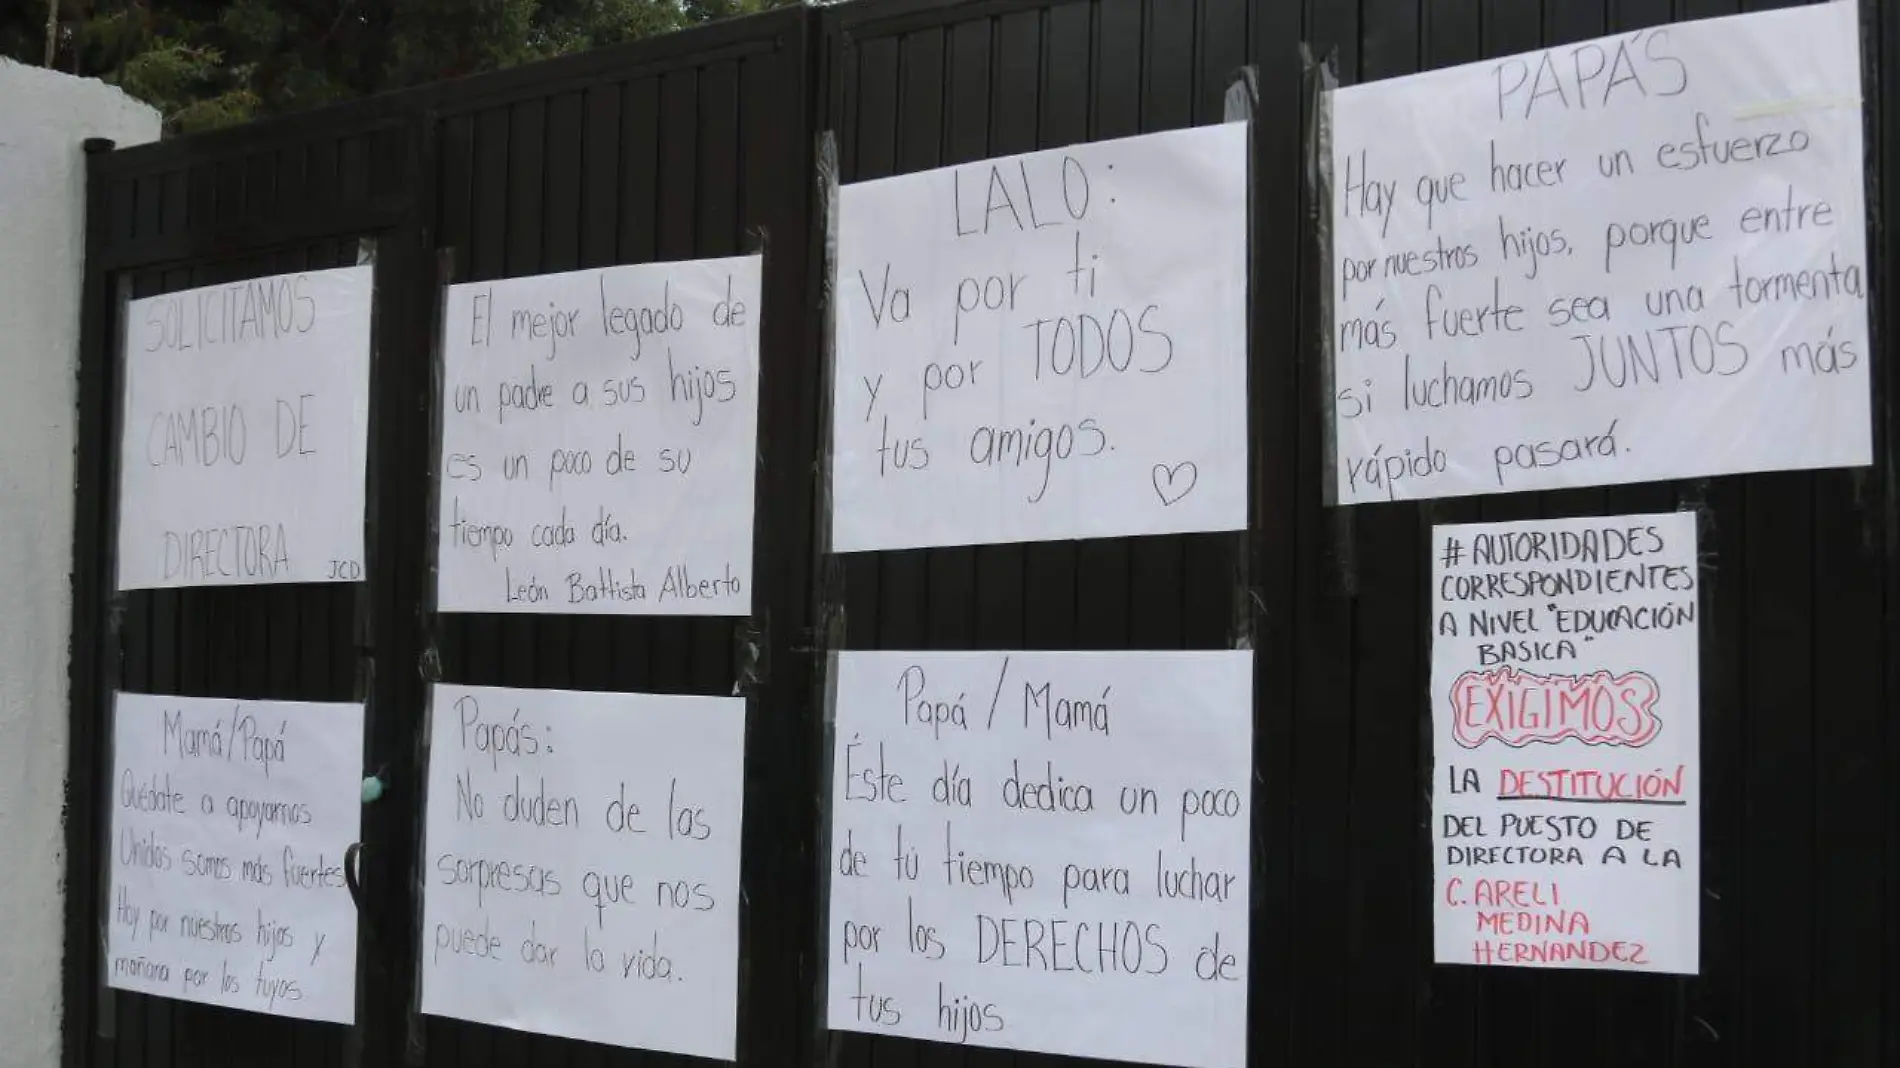 SOLICITAMOS
CAMBIO DE
DIRECTORA JCD
El mejor legado de
un padre a sus hijos
es un poco de su
tiempo cada día.
León Battista Alberto
LALO:
Va por ti
y por TODOS
tus amigos.
PAPÁS
Hay que hacer un esfuerzo
por nuestros hijos, porque entre
más fuerte sea una tormenta
si luchamos JUNTOS más
rápido pasará.
Mamá/Papá
Quédate a apoyarnos
Unidos somos más fuertes
Hoy por nuestros hijos y
mañana por los tuyos
Papás:
No duden de las
sorpresas que nos
puede dar la vida.
Papá / Mamá
Éste día dedica un poco
de tú tiempo para luchar
por los DERECHOS de
tus hijos
# AUTORIDADES
CORRESPONDIENTES
A NIVEL "EDUCACIÓN
BASICA"
EXIGIMOS
LA DESTITUCIÓN
DEL PUESTO DE
DIRECTORA A LA
C. ARELI
MEDINA
HERNANDEZ